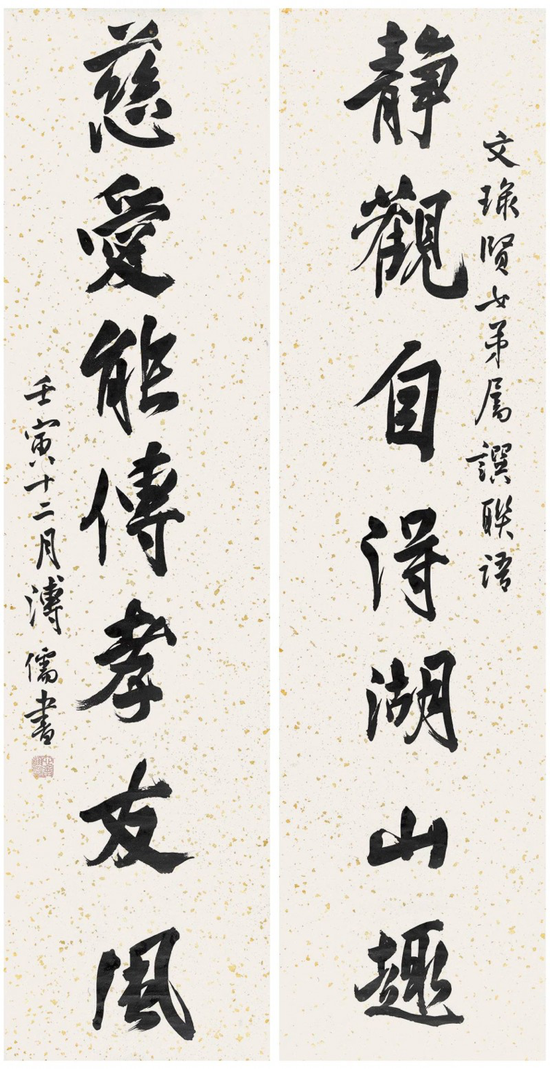 文瑑賢女弟属譔聯語
靜觀自得湖山趣
慈愛能傳孝友風
壬寅十二月溥儒書